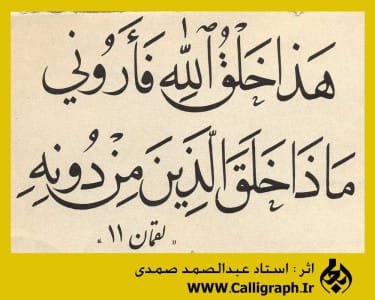 هَذَا خَلْقُ ٱللَّهِ فَأَرُونِي
مَاذَا خَلَقَ الَّذِينَ مِنْ دُونِهِ
" لقمان ١١ "
اثر : استاد عبدالصمد صمدی
www.Calligraph.Ir